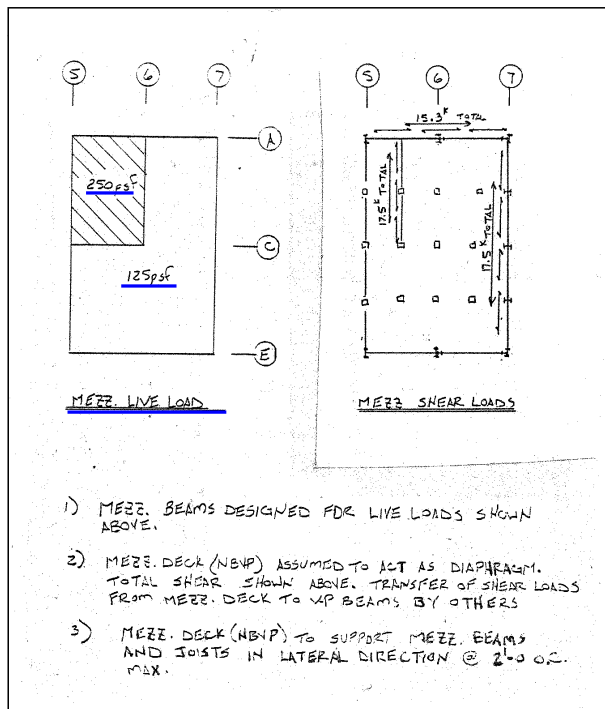 5 6 7
A
250psf
C
125psf
E
MEZZ. LIVE LOAD
5 6 7
15.3K TOTAL
17.5K TOTAL
17.5K TOTAL
MEZZ SHEAR LOADS
1) MEZZ. BEAMS DESIGNED FOR LIVE LOADS SHOWN
ABOVE.
2) MEZZ. DECK (NBVP) ASSUMED TO ACT AS DIAPHRAGM.
TOTAL SHEAR SHOWN ABOVE. TRANSFER OF SHEAR LOADS
FROM MEZZ. DECK TO VP BEAMS BY OTHERS
3) MEZZ. DECK (NBVP) TO SUPPORT MEZZ. BEAMS
AND JOISTS IN LATERAL DIRECTION @ 2'-0 O.C.
MAX.